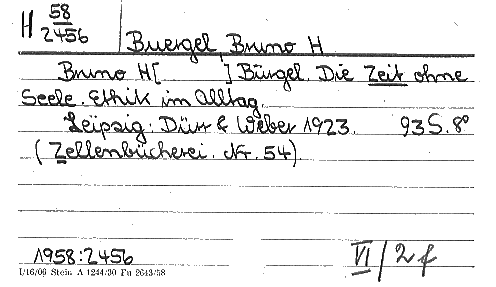 H 58
2456
Buergel, Bruno H
Bruno H[ ] Bürgel. Die Zeit ohne
Seele. Ethik im Alltag.
Leipzig: Dürr & Weber 1923. 93 S. 8°
(Zellenbücherei. Nr. 54)
1958:2456
VI/2f
I/16/09 Stein A 1244/30 Fu 2643/58